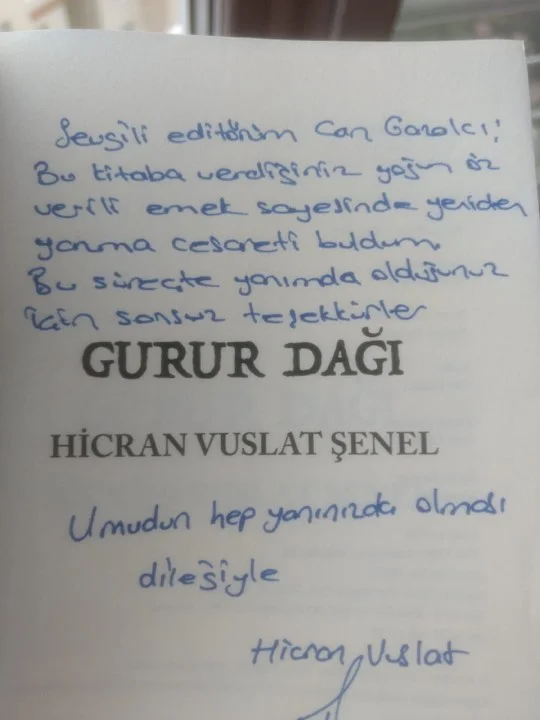 Sevgili editörüm Can Gazalcı!
Bu kitaba verdiğiniz yoğun öz
verili emek sayesinde yeniden
yazma cesareti buldum.
Bu süreçte yanımda olduğunuz
için sonsuz teşekkürler
GURUR DAĞI
HİCRAN VUSLAT ŞENEL
Umudun hep yanınızda olması
dileğiyle
Hicran Vuslat